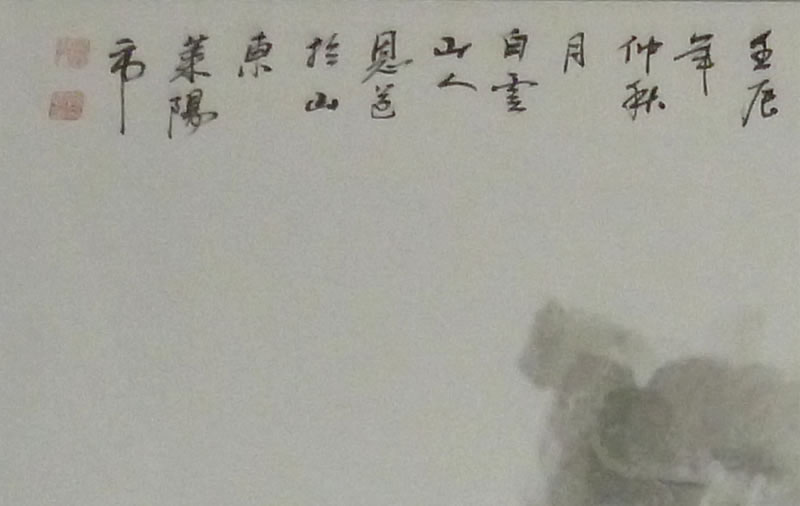 壬辰
年
仲秋
月
白雲
山人
恩道
於山
東
萊陽
市